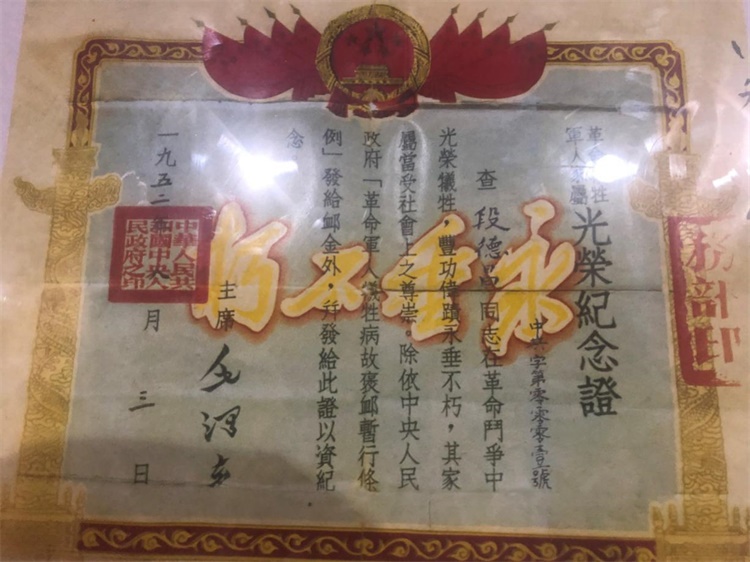 革命犧牲
軍人家屬
光榮紀念證
中共字第零零零零壹號
查段德昌同志在革命鬥爭中
光榮犧牲，豐功偉蹟永垂不朽，其家
屬當受社會上之尊崇。除依中央人民
政府「革命軍人犧牲病故褒卹暫行條
例」發給卹金外，并發給此證以資紀
念。
主席 毛澤東
一九五二年 月三日
永垂不朽
中華人民共
和國中央人
民政府之印
務部印